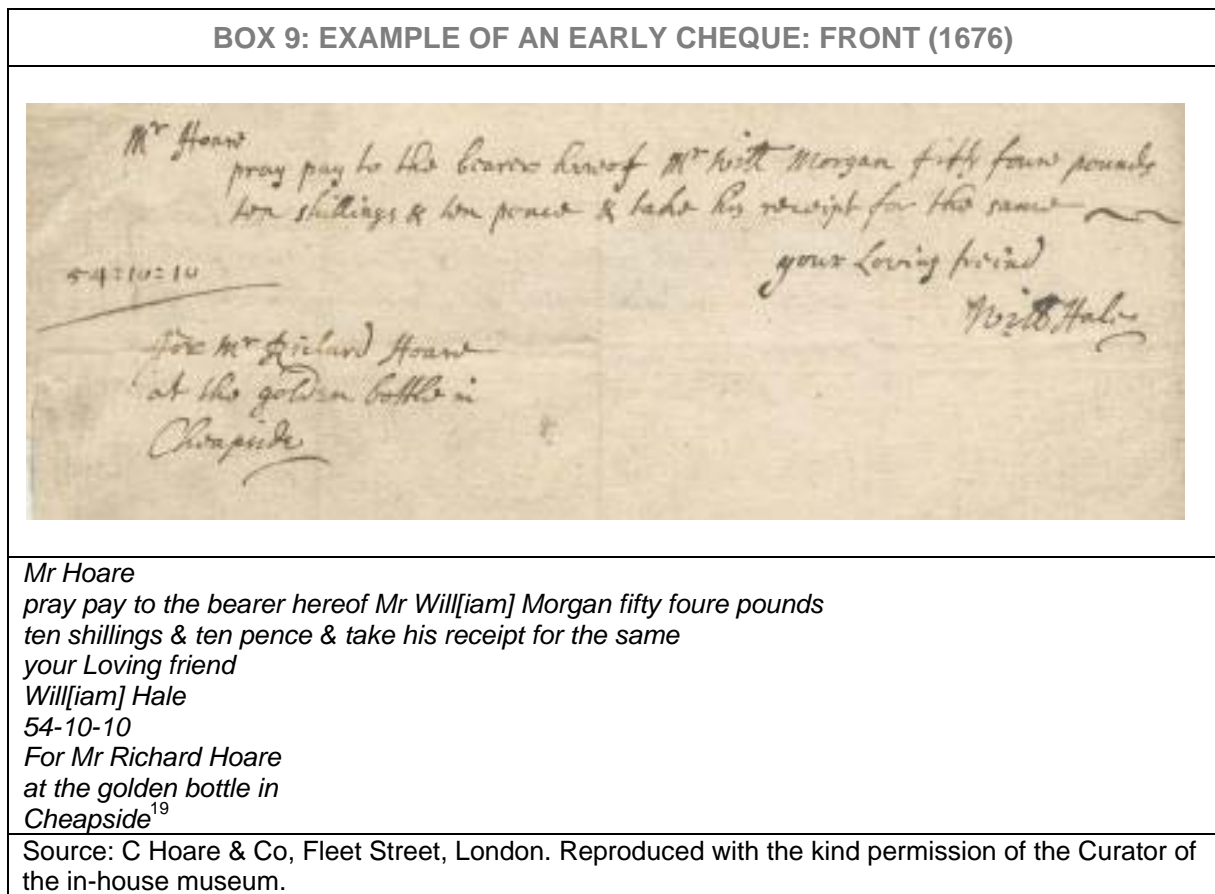 BOX 9: EXAMPLE OF AN EARLY CHEQUE: FRONT (1676)
Mr Hoare
pray pay to the bearer hereof Mr Will Morgan fifty foure pounds
ten shillings & ten pence & take his receipt for the same
your Loving freind
54=10=10
Will Hale
for Mr Richard Hoare
at the golden bottle in
Cheapside
Mr Hoare
pray pay to the bearer hereof Mr Will[iam] Morgan fifty foure pounds
ten shillings & ten pence & take his receipt for the same
your Loving friend
Will[iam] Hale
54-10-10
For Mr Richard Hoare
at the golden bottle in
Cheapside19
Source: C Hoare & Co, Fleet Street, London. Reproduced with the kind permission of the Curator of
the in-house museum.